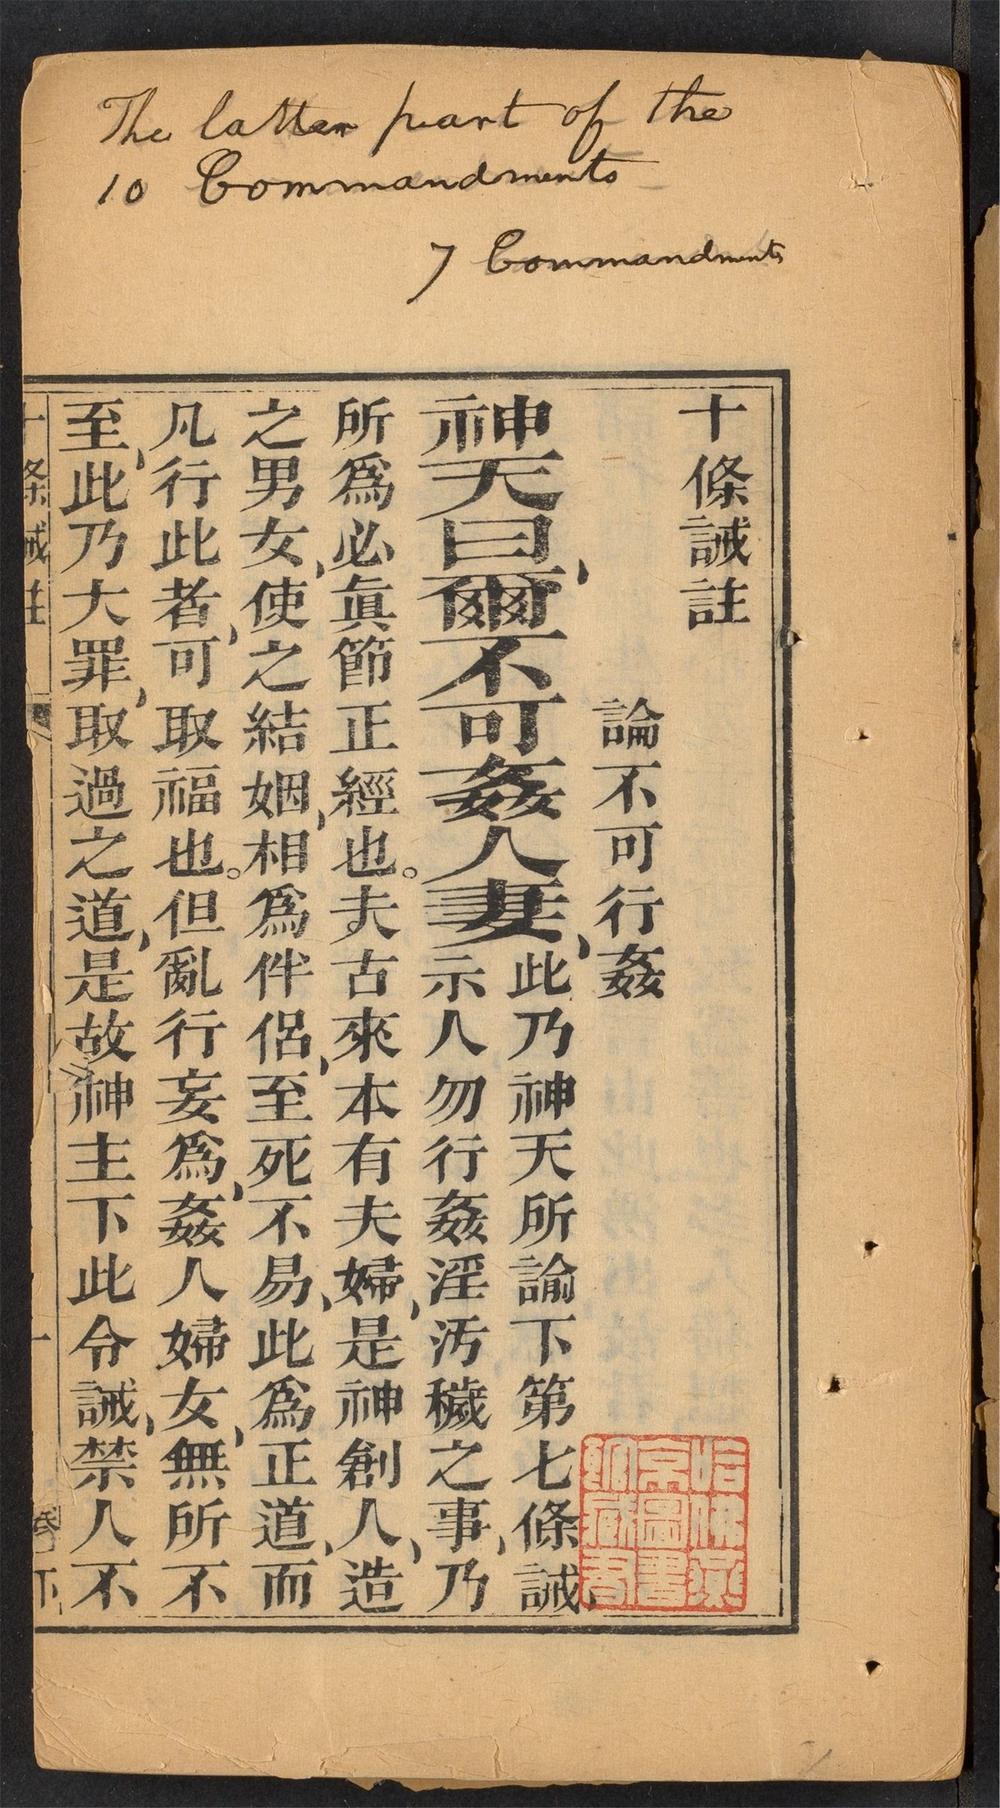 The latter part of the
10 Commandments
7 Commandments
十條誡註
論不可行姦
神天曰，爾不可姦人妻，此乃神天所諭下第七條誡，
示人勿行姦淫汚穢之事，乃
所爲必眞節正經也。夫古來本有夫婦，是神創人，造
之男女，使之結姻，相爲伴侣，至死不易，此爲正道，而
凡行此者，可取福也。但亂行妄爲，姦人婦女，無所不
至，此乃大罪，取過之道，是故神主下此令誡，禁人不
十條誡註
卷下
一
哈佛燕
京圖書
館藏書